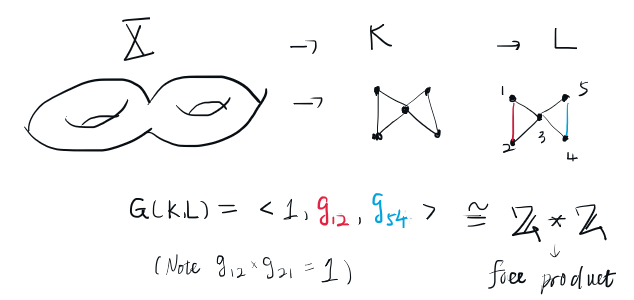 X → K → L
→
1 5
3
2 4
G(K,L) = < 1, g₁₂, g₅₄ > ≅ ℤ * ℤ
↓
(Note g₁₂ × g₂₁ = 1) free product